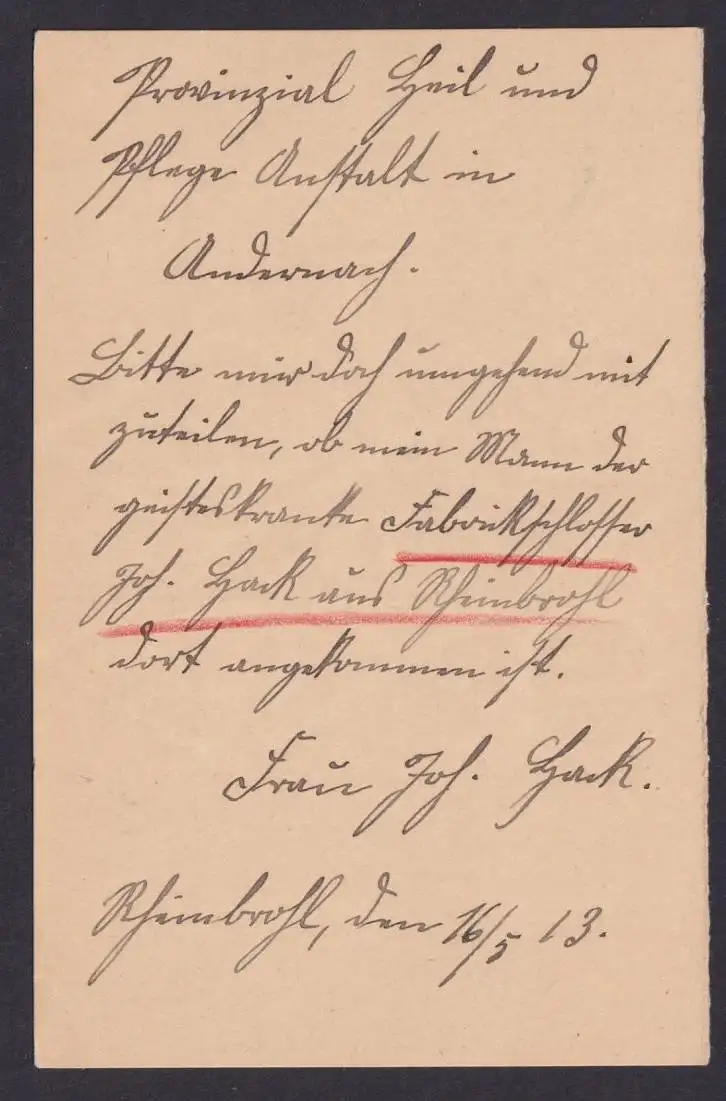 Provinzial Heil und
Pflege Anstalt in
Andernach.
Bitte mir doch umgehend mit
zuteilen, ob mein Mann der
geisteskranke Fabrickschlosser
Joh. Hack aus Rheinbrohl
dort angekommen ist.
Frau Joh. Hack.
Rheinbrohl, den 16/5 13.